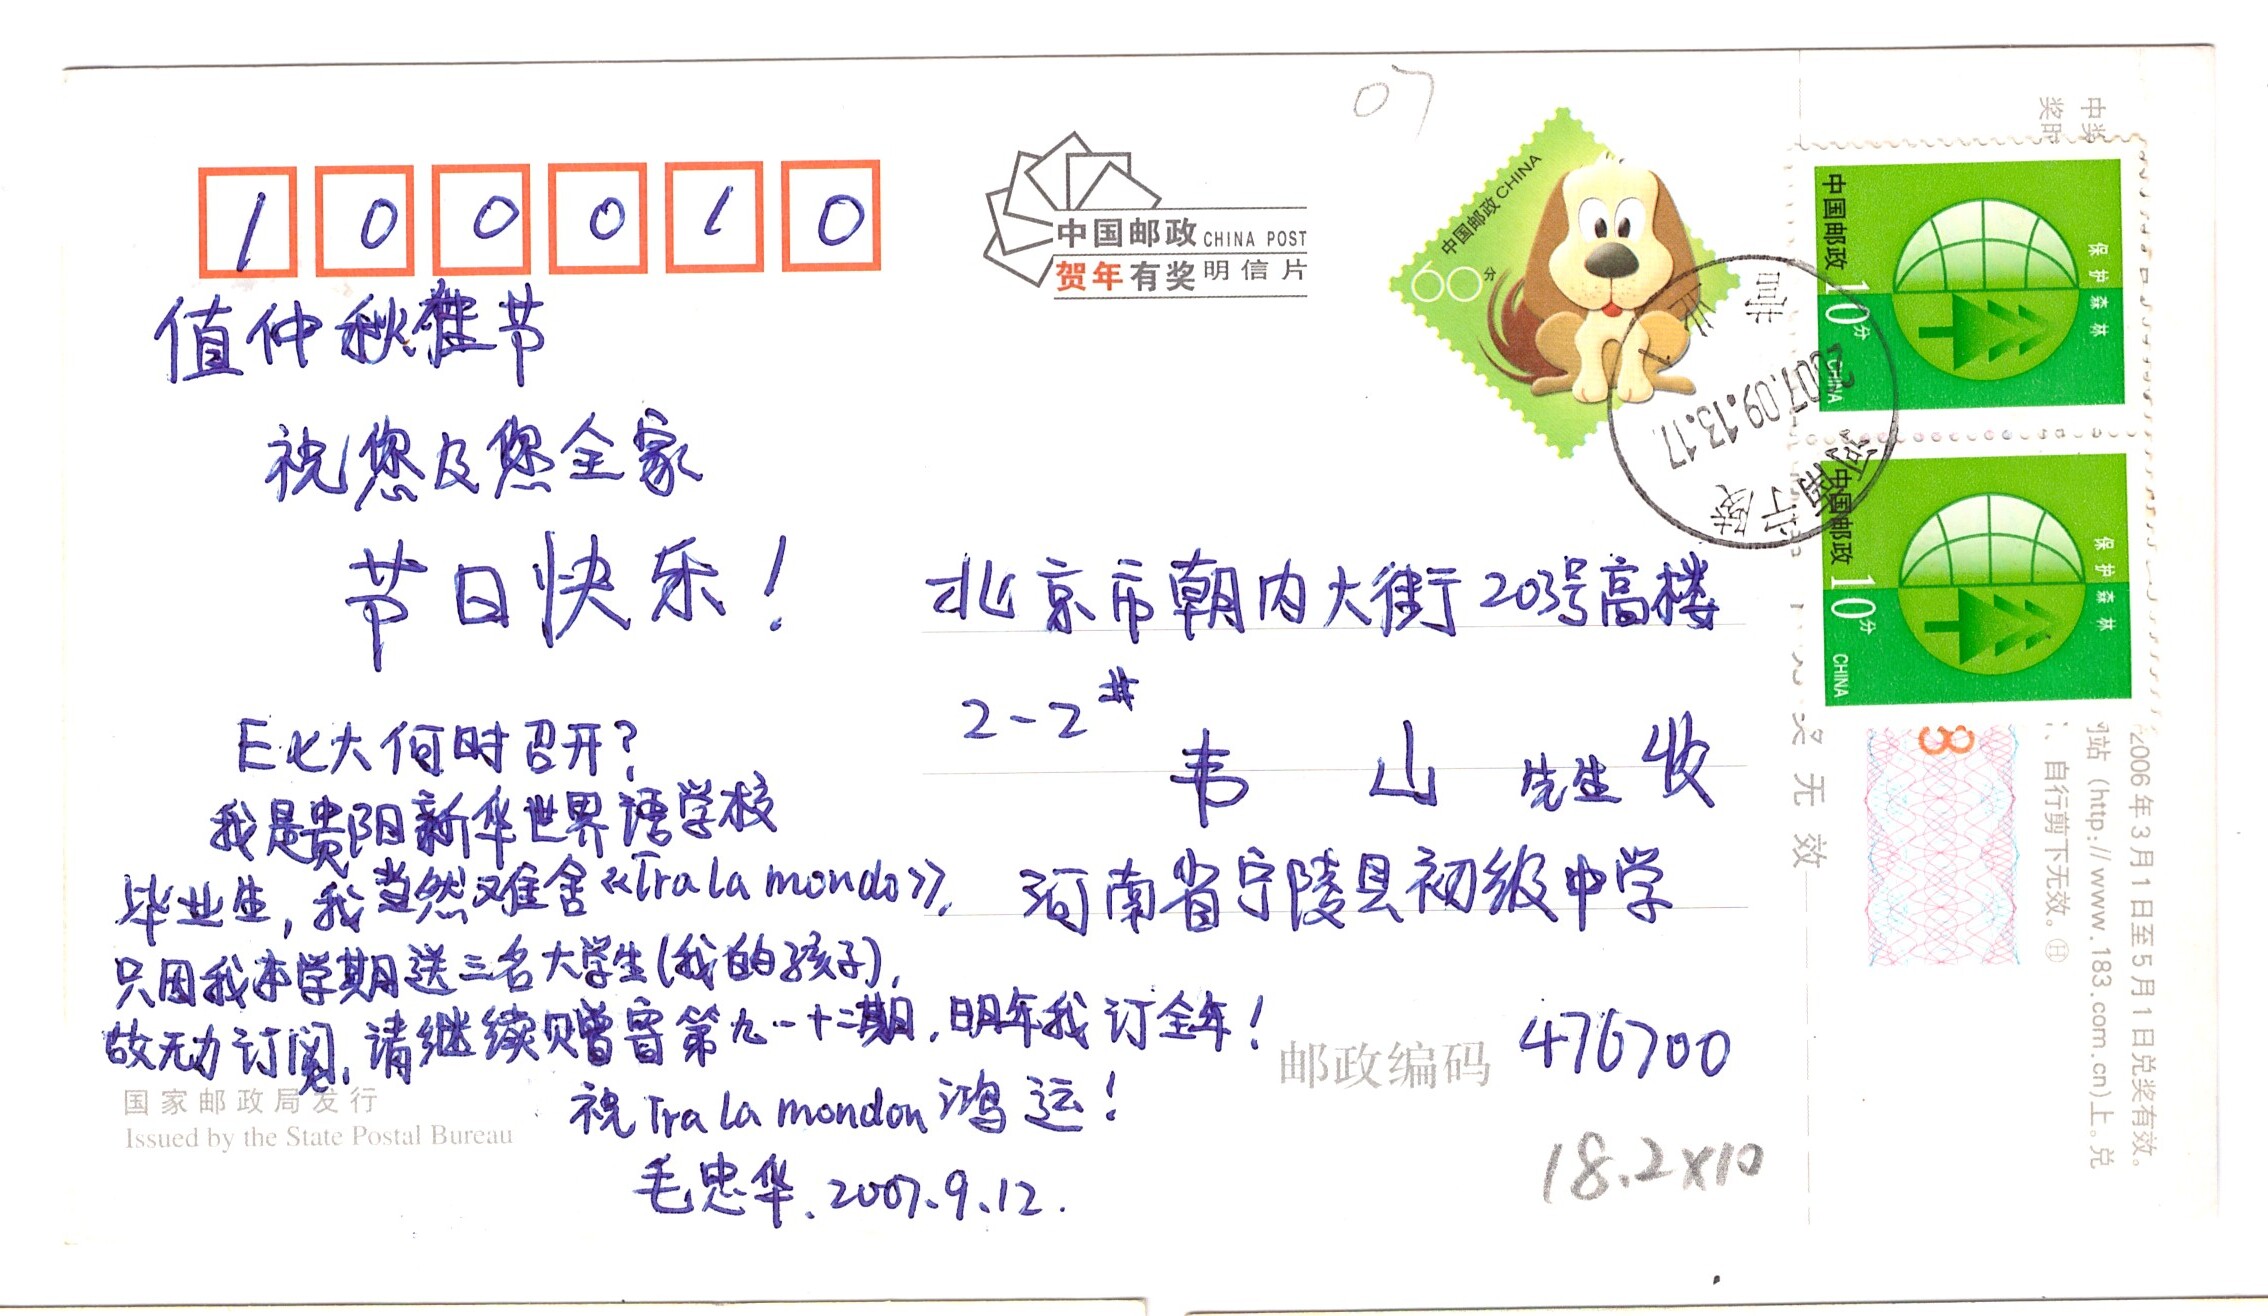 07
1 0 0 0 1 0
中国邮政 CHINA POST
贺年有奖明信片
中国邮政 CHINA
60分
中国邮政
10分
CHINA
保护森林
中国邮政
10分
CHINA
保护森林
2007.09.13.17
河南宁陵
值仲秋佳节
祝您及您全家
节日快乐!
E七大何时召开?
我是贵阳新华世界语学校
毕业生,我当然难舍《Tra la mondo》,
只因我本学期送三名大学生(我的孩子),
故无力订阅,请继续赠寄第九—十二期,明年我订全年!
祝Tra la mondon 鸿运!
毛忠华.2007.9.12.
北京市朝内大街203号高楼
2-2#
韦 山 先生 收
河南省宁陵县初级中学
邮政编码 476700
18.2x10
国家邮政局发行
Issued by the State Postal Bureau
无效
中奖
2006年3月1日至5月1日兑奖有效。
网站 (http://www.183.com.cn)上。兑
自行剪下无效。